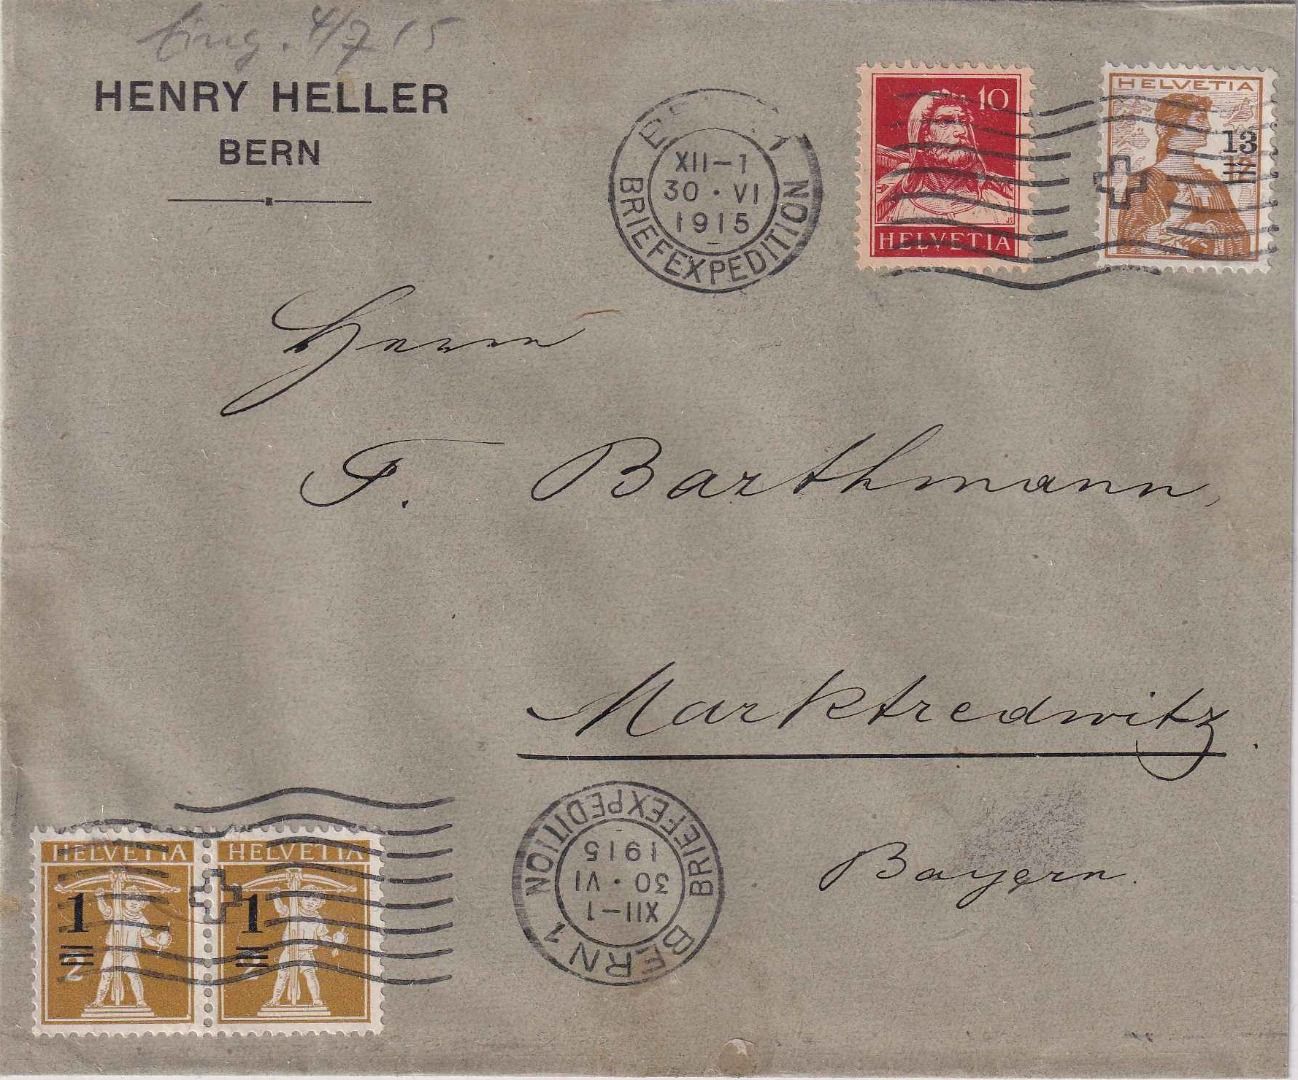 Eing. 4/7 15
HENRY HELLER
BERN
BERN 1
XII-1
30·VI
1915
BRIEFEXPEDITION
10
HELVETIA
HELVETIA
13
12
Herrn
F. Barthmann,
Marktredwitz.
Bayern.
HELVETIA
1
2
HELVETIA
1
2
BERN 1
XII-1
30·VI
1915
BRIEFEXPEDITION